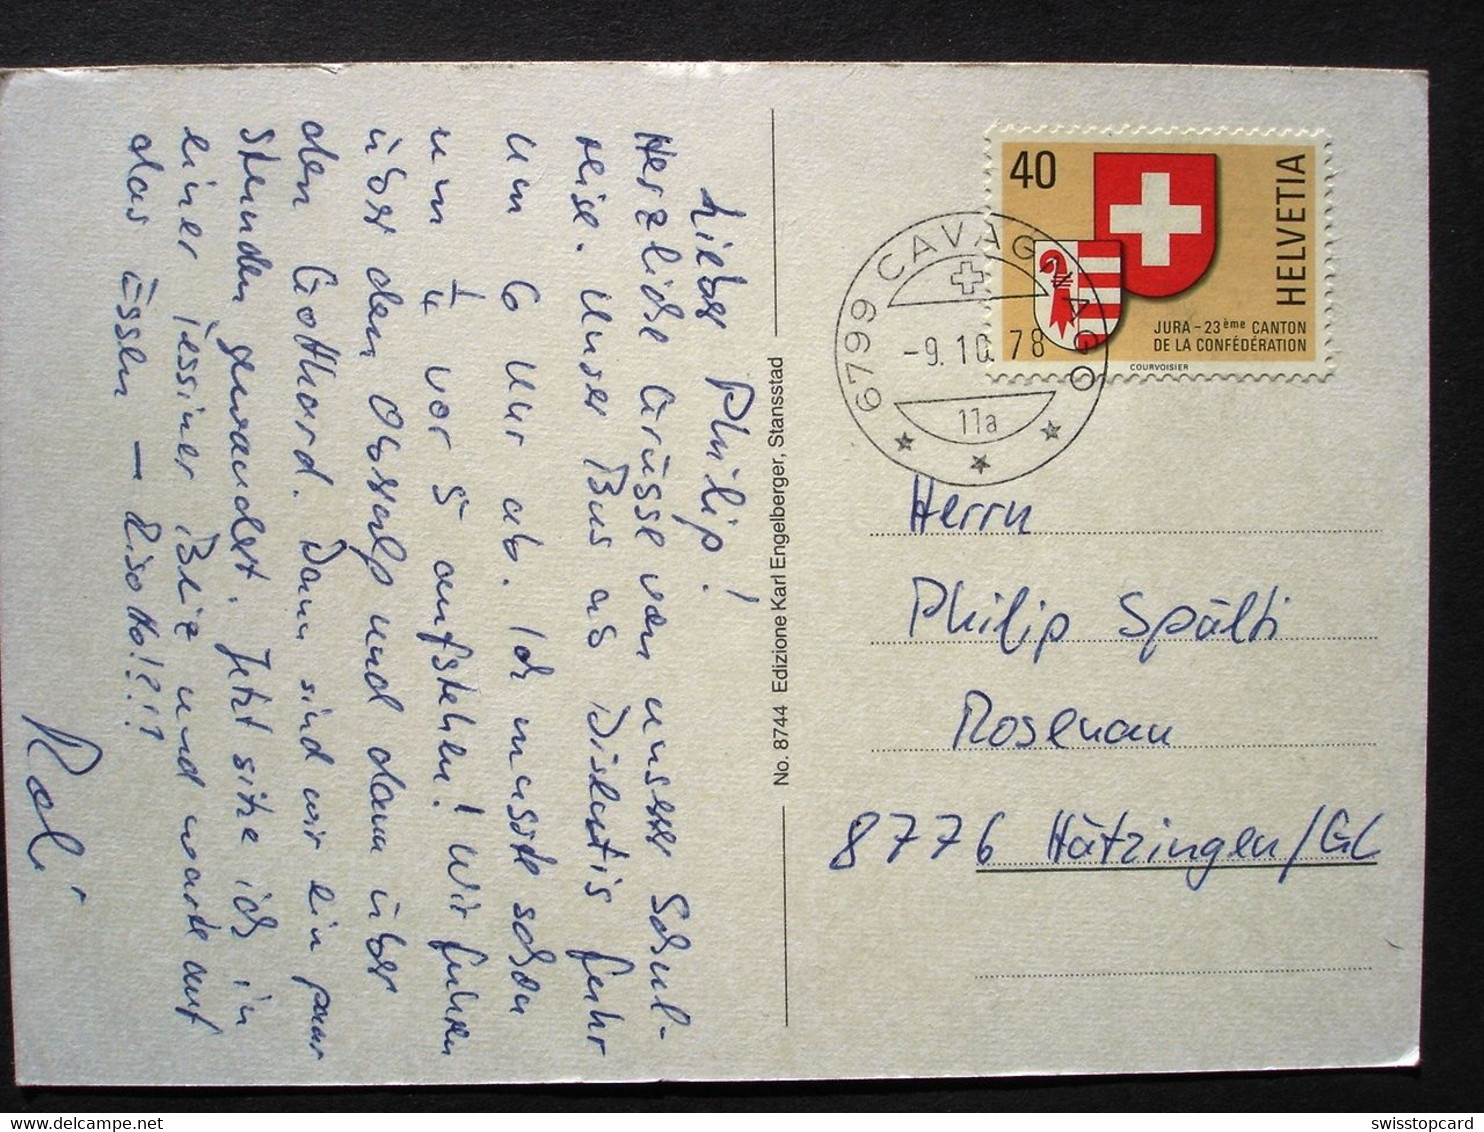 Lieber Philip!
Herzliche Grüsse von unserer Schul-
reise. Unser Bus ab Disentis fuhr
um 6 Uhr ab. Ich musste schon
um 1/4 vor 5 aufstehen! Wir fuhren
über den Oberalp und dann über
den Gotthard. Dann sind wir ein paar
Stunden gewandert. Jetzt sitze ich in
einer Tessiner Beiz und warte auf
das Essen – Risotto!?!?
Roli
No. 8744 Edizione Karl Engelberger, Stansstad
40
HELVETIA
JURA – 23ème CANTON
DE LA CONFÉDÉRATION
COURVOISIER
6799 CAVAGNAGO
-9.10.78
11a
Herrn
Philip Spälti
Rosenau
8776 Hätzingen/GL
swisstopcard